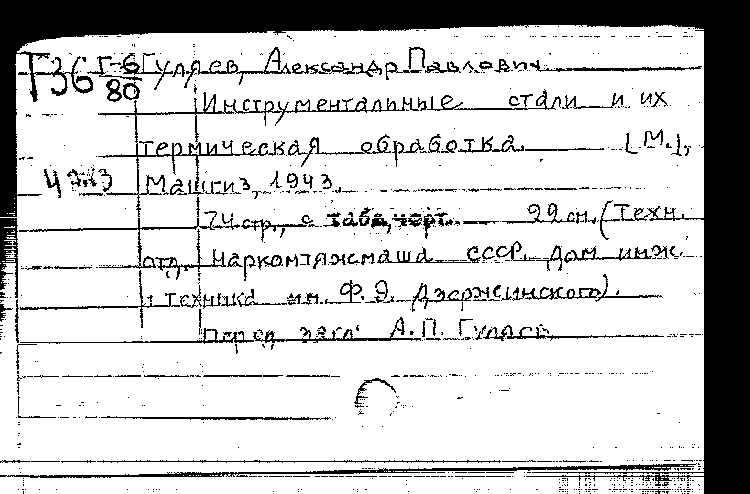 Т36 Г-6/80 Гуляев, Александр Павлович
Инструментальные стали и их
термическая обработка. [М.],
Машгиз, 1943.
74 стр., с табл., черт. 22 см. (Техн.
отд. Наркомтяжмаша СССР. Дом инж.
и техника им. Ф.Э. Дзержинского).
Перед загл. А.П. Гуляев